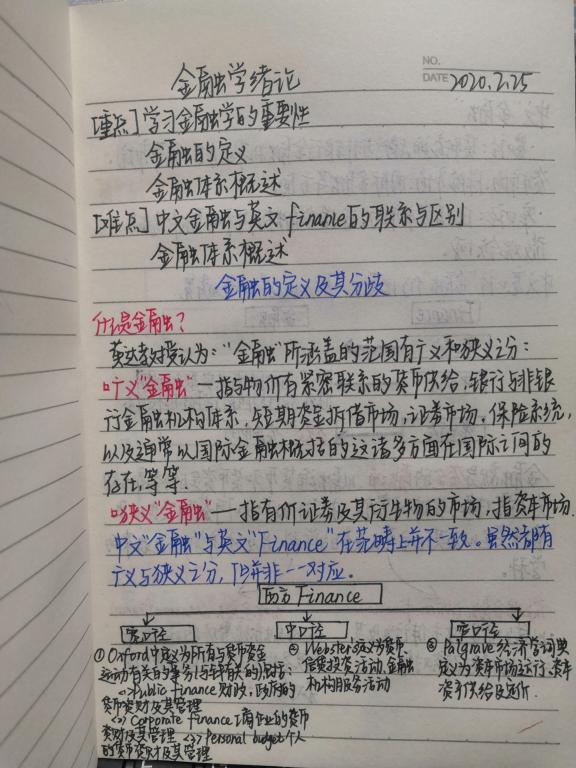 NO.
DATE 2020.2.25
金融学绪论
[重点] 学习金融学的重要性
金融的定义
金融体系概述
[难点] 中文金融与英文finance的联系与区别
金融体系概述
金融的定义及其分歧
什么是金融?
黄达教授认为:“金融”所涵盖的范围有广义和狭义之分:
广义“金融”—指与物价有紧密联系的货币供给,银行与非银
行金融机构体系,短期资金拆借市场,证券市场,保险系统,
以及通常以国际金融概括的这诸多方面在国际之间的
存在,等等.
狭义“金融”—指有价证券及其衍生物的市场,指资本市场.
中文“金融”与英文“Finance”在范畴上并不一致。虽然都有
广义与狭义之分,但并非一一对应.
西方Finance
宽口径 中口径 窄口径
①Oxford中定义为所有与货币资金
运动有关的事务,与钱有关的
<1>Public finance 财政,政府的
货币资财及其管理
<2> Corporate finance 工商企业的货币
资财及其管理 <3> Personal budget 个人
的货币资财及其管理
② Webster定义为货币、
信贷投资活动,金融
机构服务活动
③ Palgrave 经济学词典
定义为资本市场运行、资本
资产供给及定价.